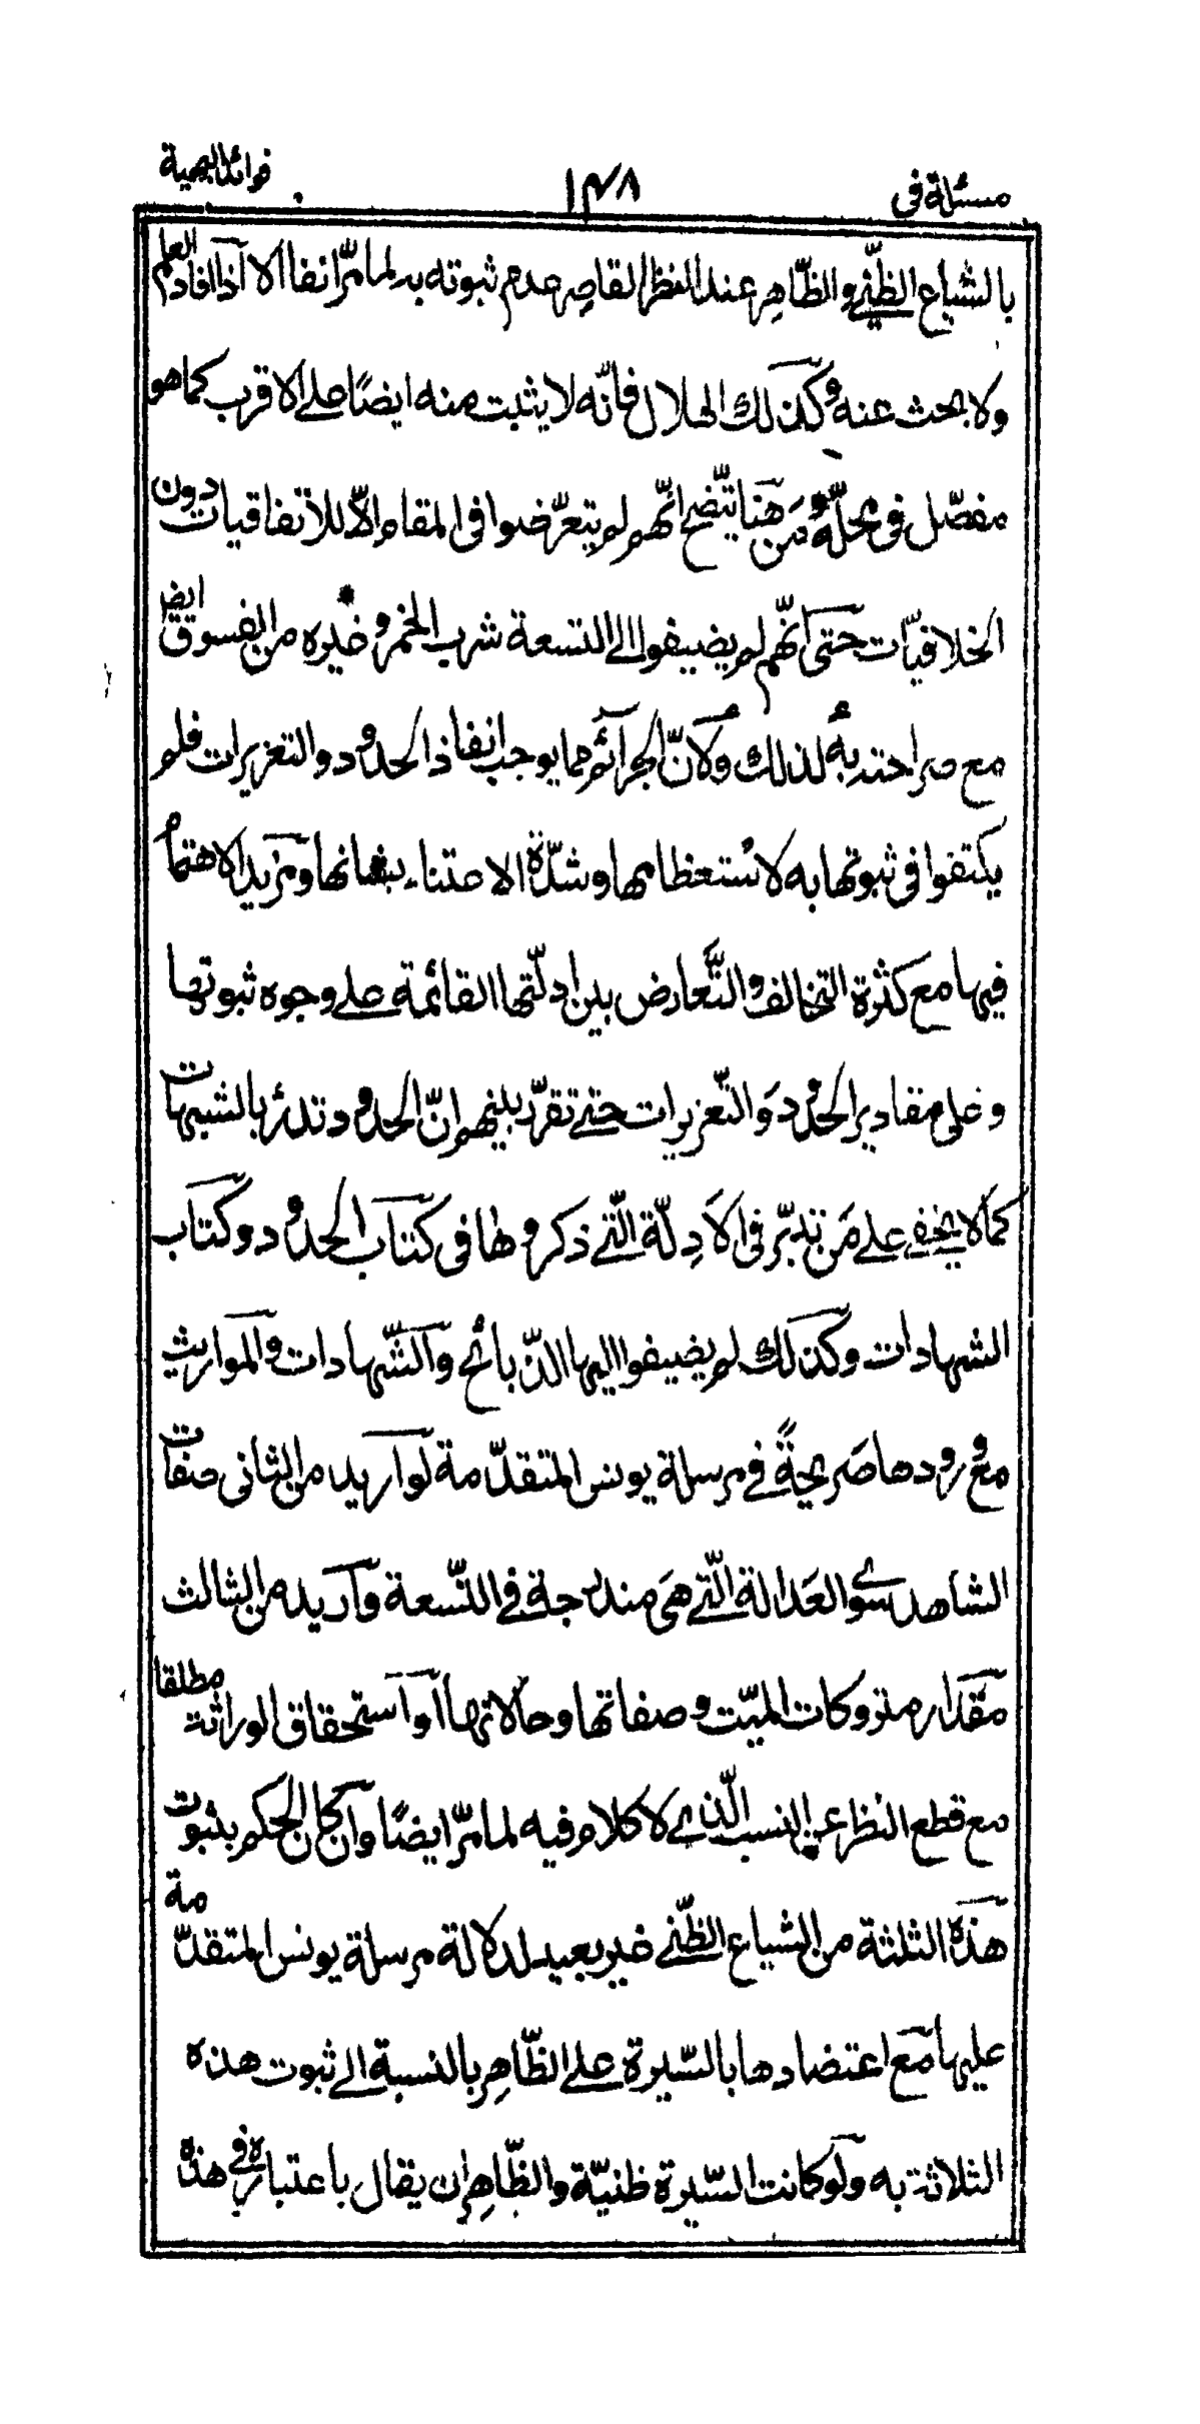 مسئلة فى
١٣٨
فوائد البهية
بالشياع الظنّے والظّاهِر عند النظر القاصِر عدم ثبوته به لما مرّ انفا الا اذا افاد العلم
ولا بحث عنه وكذلك الهلال فانّه لا يثبت منه ايضًا علے الاقرب كما هو
مفصّل فى محلّه ومن هنا يتّضح انّهم لم يتعرّضوا فى المقام الّا للاتفاقيات دون
الخلافيّات حتى انّهم لم يضيفوا الى التسعة شرب الخمر وغيره من الفسوق ايض
مع صراحته به لذلك ولانّ الجرائم مما يوجب انفاذ الحدود والتعزيرات فلم
يكتفوا فى ثبوتها به لاستعظامها وشدّة الاعتناء بشانها ومزيد الاهتمام
فيها مع كثرة التخالف والتّعارض بين ادلّتها القائمة علے وجوه ثبوتها
وعلى مقادير الحدود والتّعزيرات حتے تقرّر بينهم انّ الحدود تدرئ بالشبهات
كما لا يخفے علے من تدبّر فى الادِلّة الّتے ذكروها فى كتاب الحدود وكتاب
الشهادات وكذلك لم يضيفوا اليها الذّبائح والشّهادات والمواريث
مع ورودها صَريحةً فے مرسلة يونس المتقدّمة لو اريد من الثانى صفات
الشاهد سوے العَدالة الّتے هى مندرجة فے التّسعة واريد من الثالث
مقدار متروكات الميّت وصفاتها وحالاتها او استحقاق الوراثة مطلقا
مع قطع النظر عن النسب الّذے لا كلام فيه لما مرّ ايضًا وان كان الحكم بثبوت
هذه الثلثة من الشياع الظنّے غير بعيد لدلالة مرسلة يونس المتقدّمة
عليها مع اعتضادها بالسّيرة علے الظّاهِر بالنسبة الے ثبوت هذه
الثلاثة به ولو كانت السّيرة ظنيّة والظّاهِر ان يقال باعتباره فے هذه